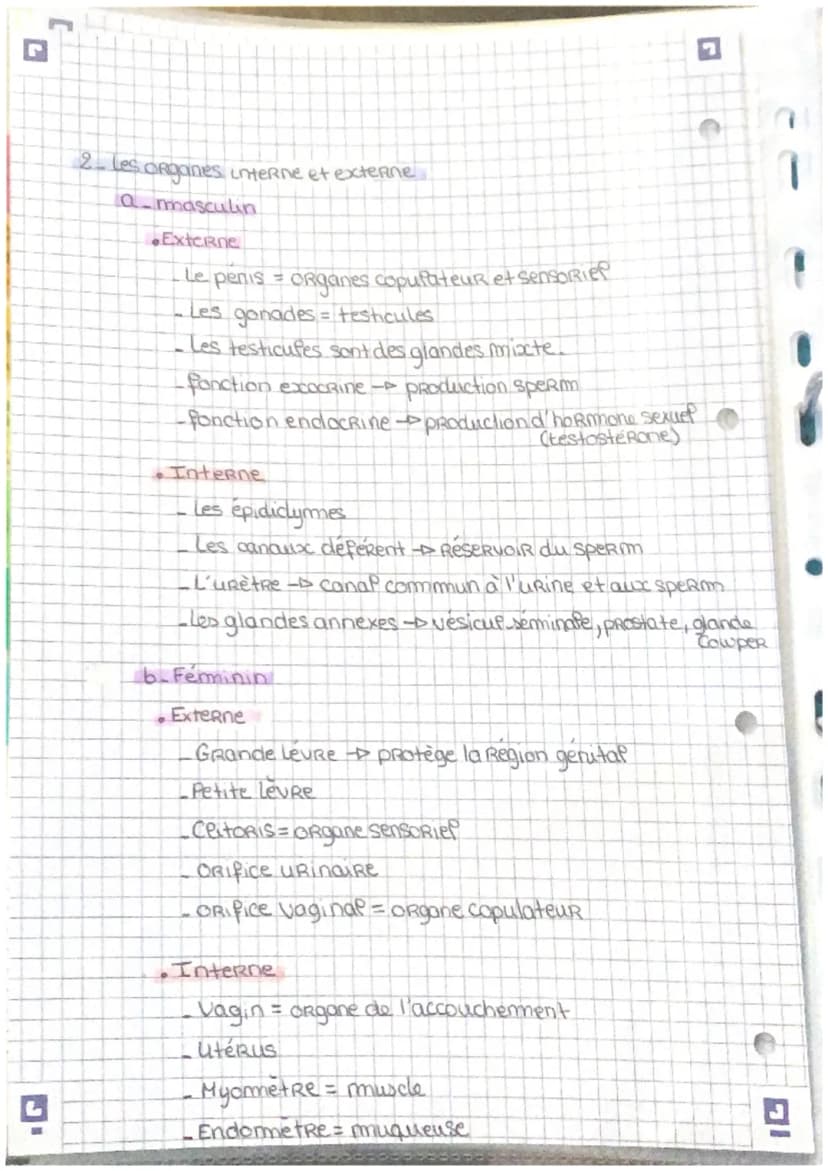 2- Les organes interne et externe
a - masculin
• Externe
- Le pénis = organes copulateur et sensoriel
- Les gonades = testicules
- Les testicules sont des glandes mixte.
- fonction exocrine → production sperm
- fonction endocrine → production d'hormone sexuel
(testostérone)
• Interne
- Les épididymes
- Les canaux déférent → Réservoir du sperm
- L'urètre → canal commun à l'urine et aux sperm
- Les glandes annexes → vésicul séminale, prostate, glande
Cowper
b - Féminin
• Externe
- Grande lèvre → protège la Région génital
- Petite lèvre
- Clitoris = organe sensoriel
- Orifice urinaire
- Orifice vaginal = organe copulateur
• Interne
- Vagin = organe de l'accouchement
- Utérus
- Myomètre = muscle
- Endomètre = muqueuse